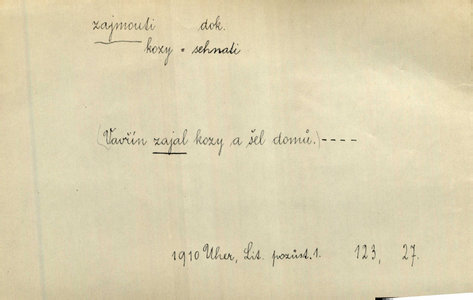 zajmouti dok.
kozy = sehnati
(Vavřín zajal kozy a šel domů.) ----
1910 Uher, Lit. pozůst. 1. 123, 27.